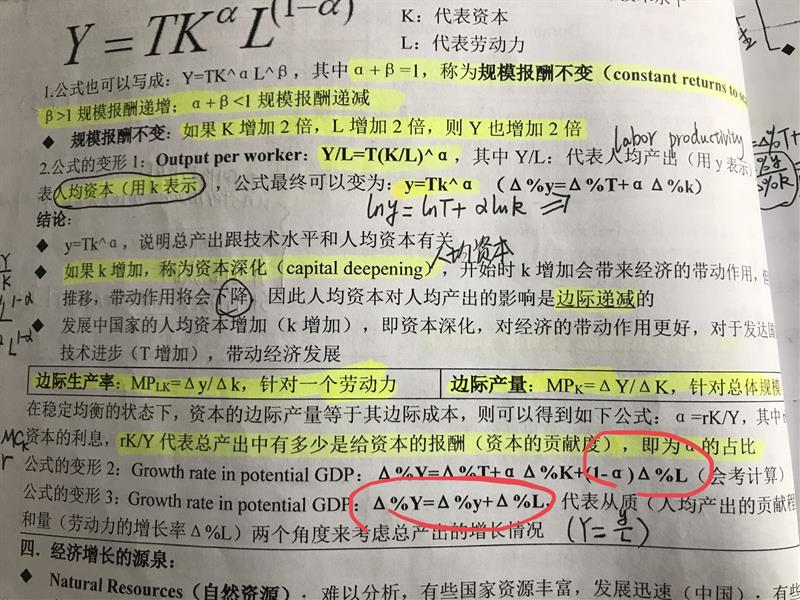 Y=TK^αL^(1-α)
K：代表资本
L：代表劳动力
1.公式也可以写成：Y=TK^αL^β，其中α+β=1，称为规模报酬不变（constant returns to
β>1规模报酬递增；α+β<1规模报酬递减
◆ 规模报酬不变：如果K增加2倍，L增加2倍，则Y也增加2倍
labor productivity
2.公式的变形1：Output per worker：Y/L=T(K/L)^α，其中Y/L：代表人均产出（用y表示
表人均资本（用k表示），公式最终可以变为：y=Tk^α（Δ%y=Δ%T+αΔ%k）
lny=lnT+αlnk ⇒
结论：
◆ y=Tk^α，说明总产出跟技术水平和人均资本有关
人均资本
◆ 如果k增加，称为资本深化（capital deepening），开始时k增加会带来经济的带动作用，但
推移，带动作用将会下降，因此人均资本对人均产出的影响是边际递减的
◆ 发展中国家的人均资本增加（k增加），即资本深化，对经济的带动作用更好，对于发达国
技术进步（T增加），带动经济发展
边际生产率：MPLK=Δy/Δk，针对一个劳动力 边际产量：MPK=ΔY/ΔK，针对总体规模
在稳定均衡的状态下，资本的边际产量等于其边际成本，则可以得到如下公式：α=rK/Y，其中r
资本的利息，rK/Y代表总产出中有多少是给资本的报酬（资本的贡献度），即为α的占比
公式的变形2：Growth rate in potential GDP：Δ%Y=Δ%T+αΔ%K+(1-α)Δ%L（会考计算）
公式的变形3：Growth rate in potential GDP：Δ%Y=Δ%y+Δ%L，代表从质（人均产出的贡献程
和量（劳动力的增长率Δ%L）两个角度来考虑总产出的增长情况
(Y=y/L)
四．经济增长的源泉：
◆ Natural Resources（自然资源）：难以分析，有些国家资源丰富，发展迅速（中国）；有些